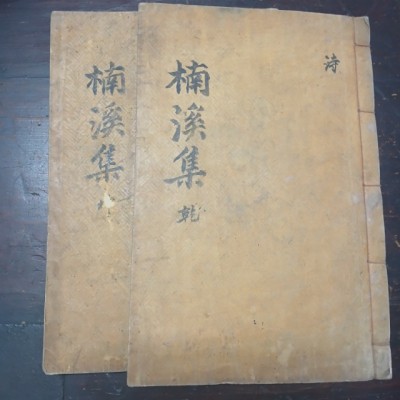 詩
楠溪集
乾
楠溪集